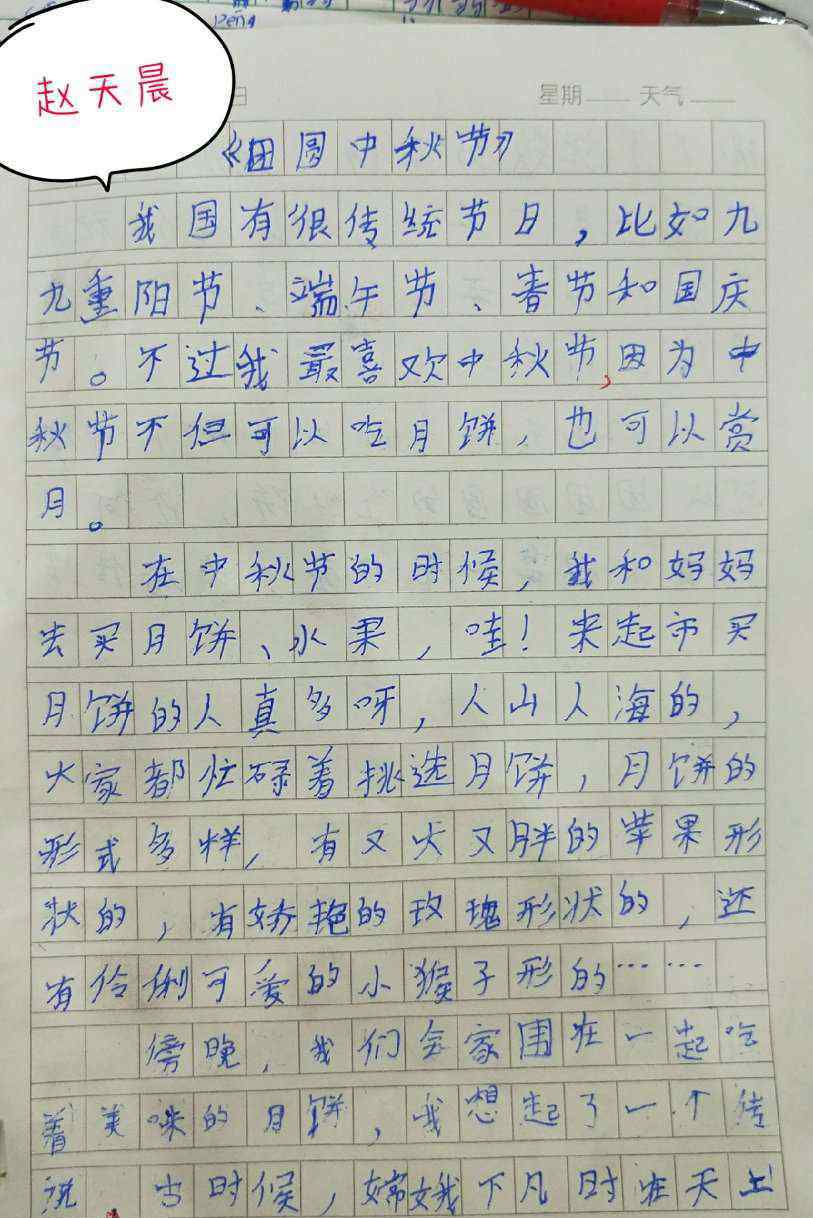 赵天晨
日 星期 天气
《团圆中秋节》
我国有很传统节日，比如九
九重阳节、端午节、春节和国庆
节。不过我最喜欢中秋节，因为中
秋节不但可以吃月饼，也可以赏
月。
在中秋节的时候，我和妈妈
去买月饼、水果，哇！来起市买
月饼的人真多呀，人山人海的，
大家都忙碌着挑选月饼，月饼的
形式多样，有又大又胖的苹果形
状的，有娇艳的玫瑰形状的，还
有伶俐可爱的小猴子形的……
傍晚，我们全家围在一起吃
着美味的月饼，我想起了一个传
说 古时候，嫦娥下凡时在天上